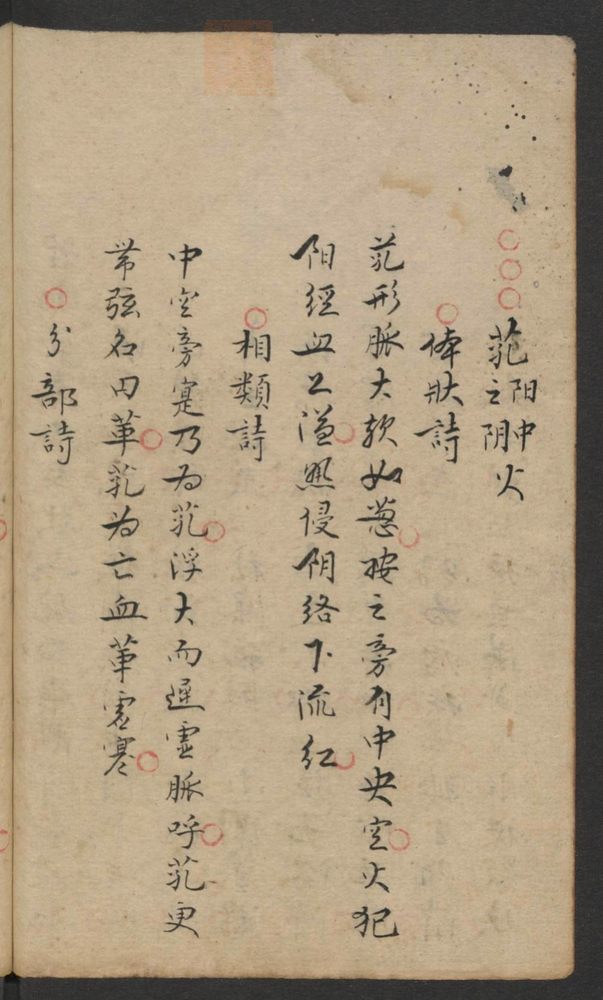 芤阳中之阴火
体狀詩
芤形脈大软如葱按之旁有中央空火犯
阳經血上溢熱侵阴络下流红
相類詩
中空旁寔乃为芤浮大而遲虚脈呼芤更
带弦名曰革芤为亡血革虚寒
分部詩